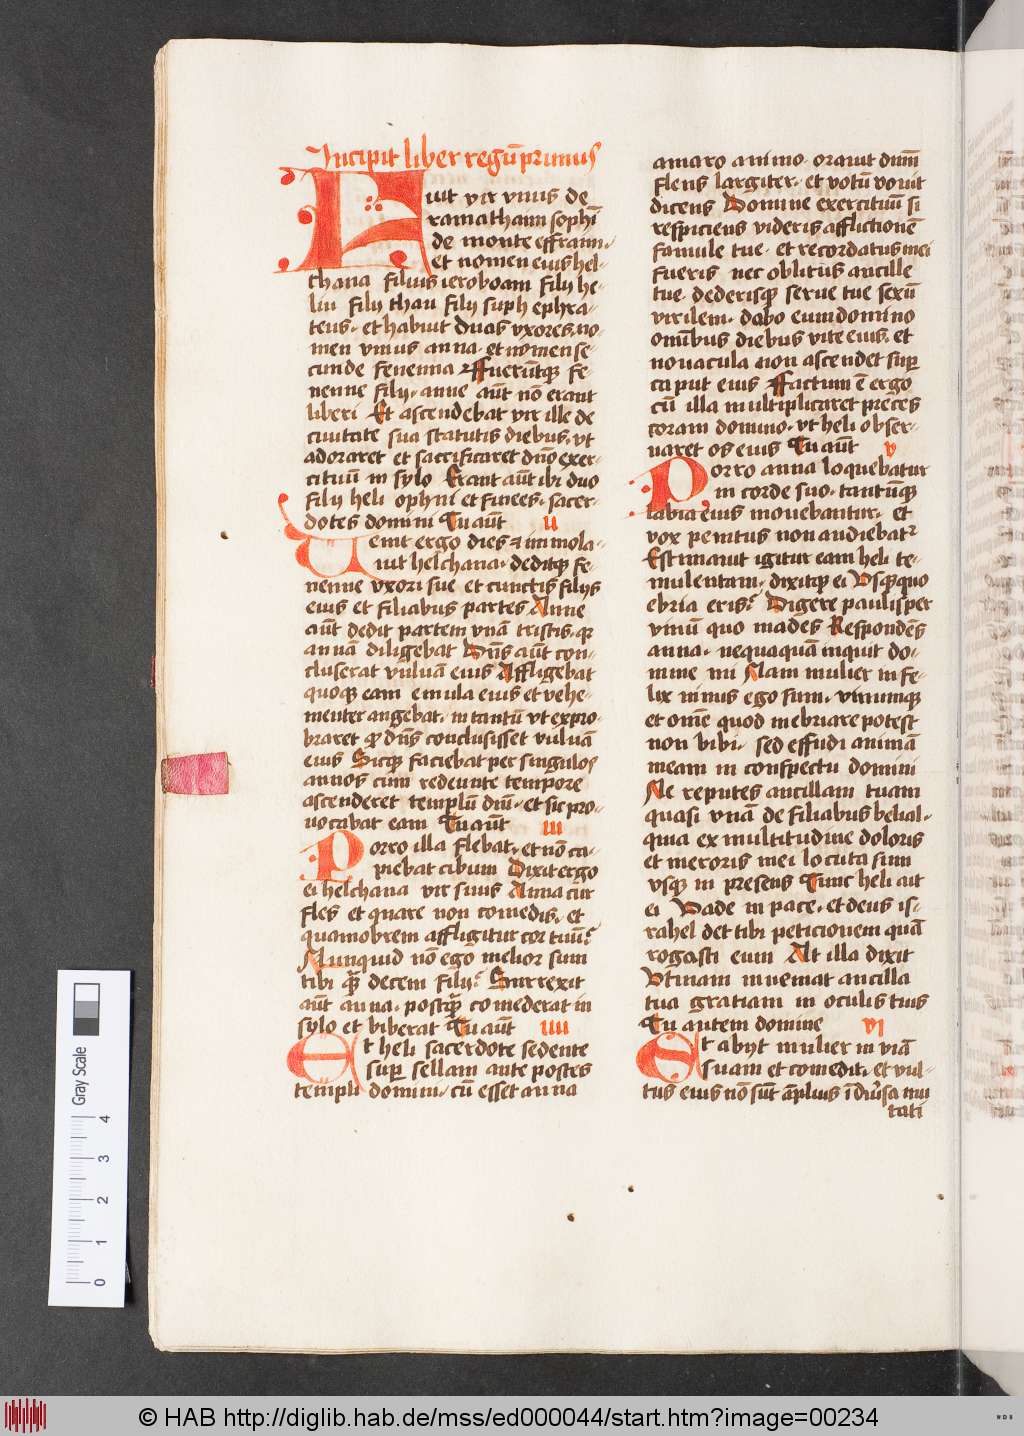 Incipit liber regū primus
Fuit vir vnus de
ramathaim sophī
de monte effraim.
et nomen eius hel-
chana filius ieroboam filij he-
liu filij thau filij suph ephra-
teus. et habuit duas vxores. no-
men vnius anna. et nomen se-
cunde fenenna Fuerūtqꝫ fe-
nenne filij. anne aūt nō erant
liberi Et ascendebat vir ille de
ciuitate sua statutis diebus. vt
adoraret et sacrificaret dn̄o exer-
cituū in sylo Erant aūt ibi duo
filij heli ophni et finees. sacer-
dotes domini Tu aūt ii
Uenit ergo dies ⁊ immola-
uit helchana. deditqꝫ fe-
nenne vxori sue et cunctis filijs
eius et filiabus partes Anne
aūt dedit partem vnā tristis. qꝛ
annā diligebat Dn̄s aūt con-
cluserat vuluā eius Affligebat
quoqꝫ eam emula eius et vehe-
menter angebat. in tantū vt expro-
braret ꝙ dn̄s conclusisset vuluā
eius Sicqꝫ faciebat per singulos
annos cum redeunte tempore
ascenderet templū dn̄i. et sic pro-
uocabat eam Tu aūt iii
Porro illa flebat. et nō ca-
piebat cibum Dixit ergo
ei helchana vir suus Anna cur
fles et quare non comedis. et
quamobrem affligitur cor tuū?
Nunquid nō ego melior sum
tibi qꝫ̄ decem filij? Surrexit
aūt anna. postqꝫ̄ comederat in
sylo et biberat Tu aūt iiii
Et heli sacerdote sedente
super sellam ante postes
templi domini. cū esset anna
amaro animo. orauit dn̄m
flens largiter. et votū vouit
dicens Domine exercituū si
respiciens videris afflictionē
famule tue. et recordatus mei
fueris nec oblitus ancille
tue. dederisqꝫ serue tue sexū
virilem. dabo eum domino
omībus diebus vite eius. et
nouacula non ascendet suꝑ
caput eius Factum ē ergo
cū illa multiplicaret preces
coram domino. vt heli obser-
uaret os eius Tu aūt v
Porro anna loquebatur
in corde suo. tantūqꝫ
labia eius mouebantur. et
vox penitus non audiebatᷣ
Estimauit igitur eam heli te-
mulentam. dixitqꝫ ei Vsqꝫquo
ebria eris? Digere paulisper
vinū quo mades Respondēs
anna. nequaquā inquit do-
mine mi Nam mulier infe-
lix nimis ego sum. vinumqꝫ
et omē quod inebriare potest
non bibi. sed effudi animā
meam in conspectu domini
Ne reputes ancillam tuam
quasi vnā de filiabus belial.
quia ex multitudine doloris
et meroris mei locuta sum
vsqꝫ in presens Tunc heli ait
ei Vade in pace. et deus is-
rahel det tibi peticionem quā
rogasti eum At illa dixit
Vtinam inueniat ancilla
tua gratiam in oculis tuis
Tu autem domine vi
Et abijt mulier in viā
suam et comedit. et vul-
tus eius nō sūt āplius ī diu'sa mu
tati
Gray Scale
0 1 2 3 4
© HAB http://diglib.hab.de/mss/ed000044/start.htm?image=00234